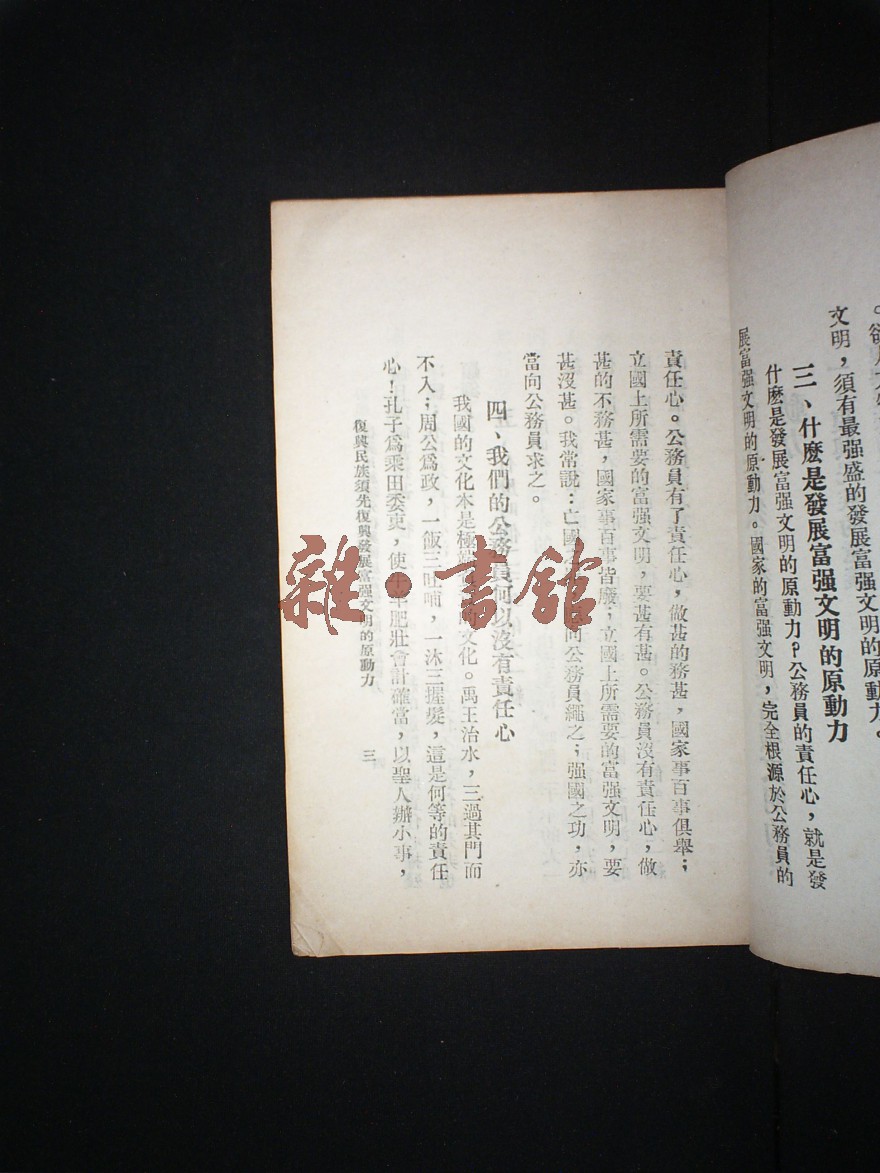 文明，須有最强盛的發展富强文明的原動力。
三、什麽是發展富强文明的原動力
什麽是發展富强文明的原動力？公務員的責任心，就是發
展富强文明的原動力。國家的富强文明，完全根源於公務員的
責任心。公務員有了責任心，做甚的務甚，國家事百事俱舉；
立國上所需要的富强文明，要甚有甚。公務員沒有責任心，做
甚的不務甚，國家事百事皆廢；立國上所需要的富强文明，要
甚沒甚。我常說：亡國 向公務員繩之；强國之功，亦
當向公務員求之。
四、我們的公務員何以沒有責任心
我國的文化本是極 的文化。禹王治水，三過其門而
不入；周公爲政，一飯三吐哺，一沐三握髮，這是何等的責任
心！孔子爲乘田委吏，使牛羊肥壯會計確當，以聖人辦小事，
復興民族須先復興發展富强文明的原動力
三
雜·書館